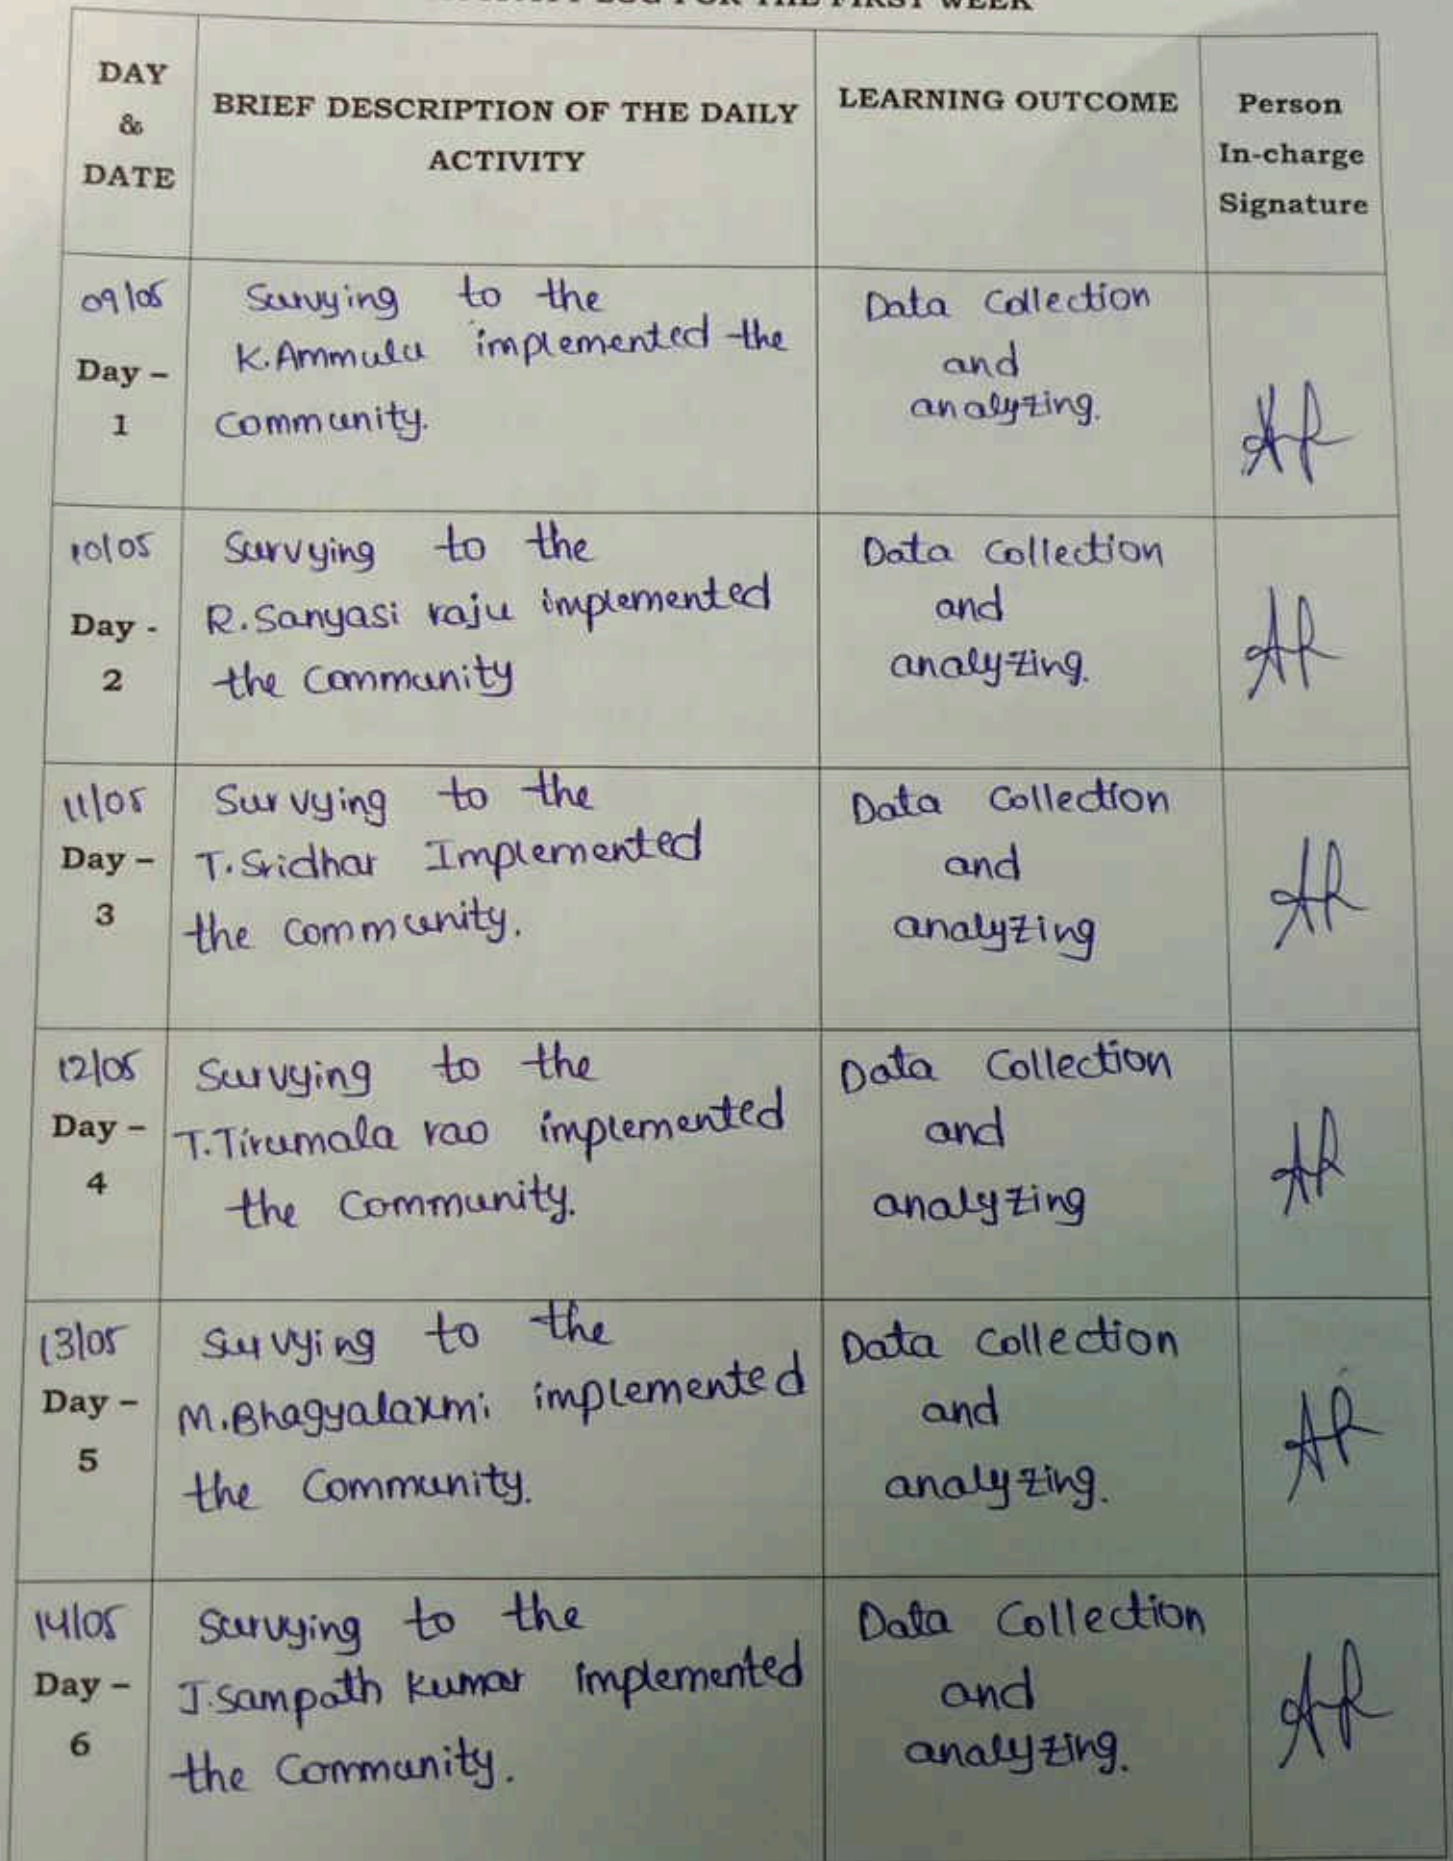 FOR THE FIRST WEEK
DAY
&
DATE
BRIEF DESCRIPTION OF THE DAILY
ACTIVITY
LEARNING OUTCOME
Person
In-charge
Signature
09/05
Day –
1
Survying to the
K.Ammulu implemented the
Community.
Data Collection
and
analyzing.
10/05
Day -
2
Survying to the
R.Sanyasi raju implemented
the Community
Data Collection
and
analyzing.
11/05
Day –
3
Survying to the
T.Sridhar Implemented
the Community.
Data Collection
and
analyzing
12/05
Day –
4
Survying to the
T.Tirumala rao implemented
the Community.
Data Collection
and
analyzing
13/05
Day –
5
Survying to the
M.Bhagyalaxmi implemented
the Community.
Data Collection
and
analyzing.
14/05
Day –
6
Survying to the
J.Sampath Kumar implemented
the Community.
Data Collection
and
analyzing.